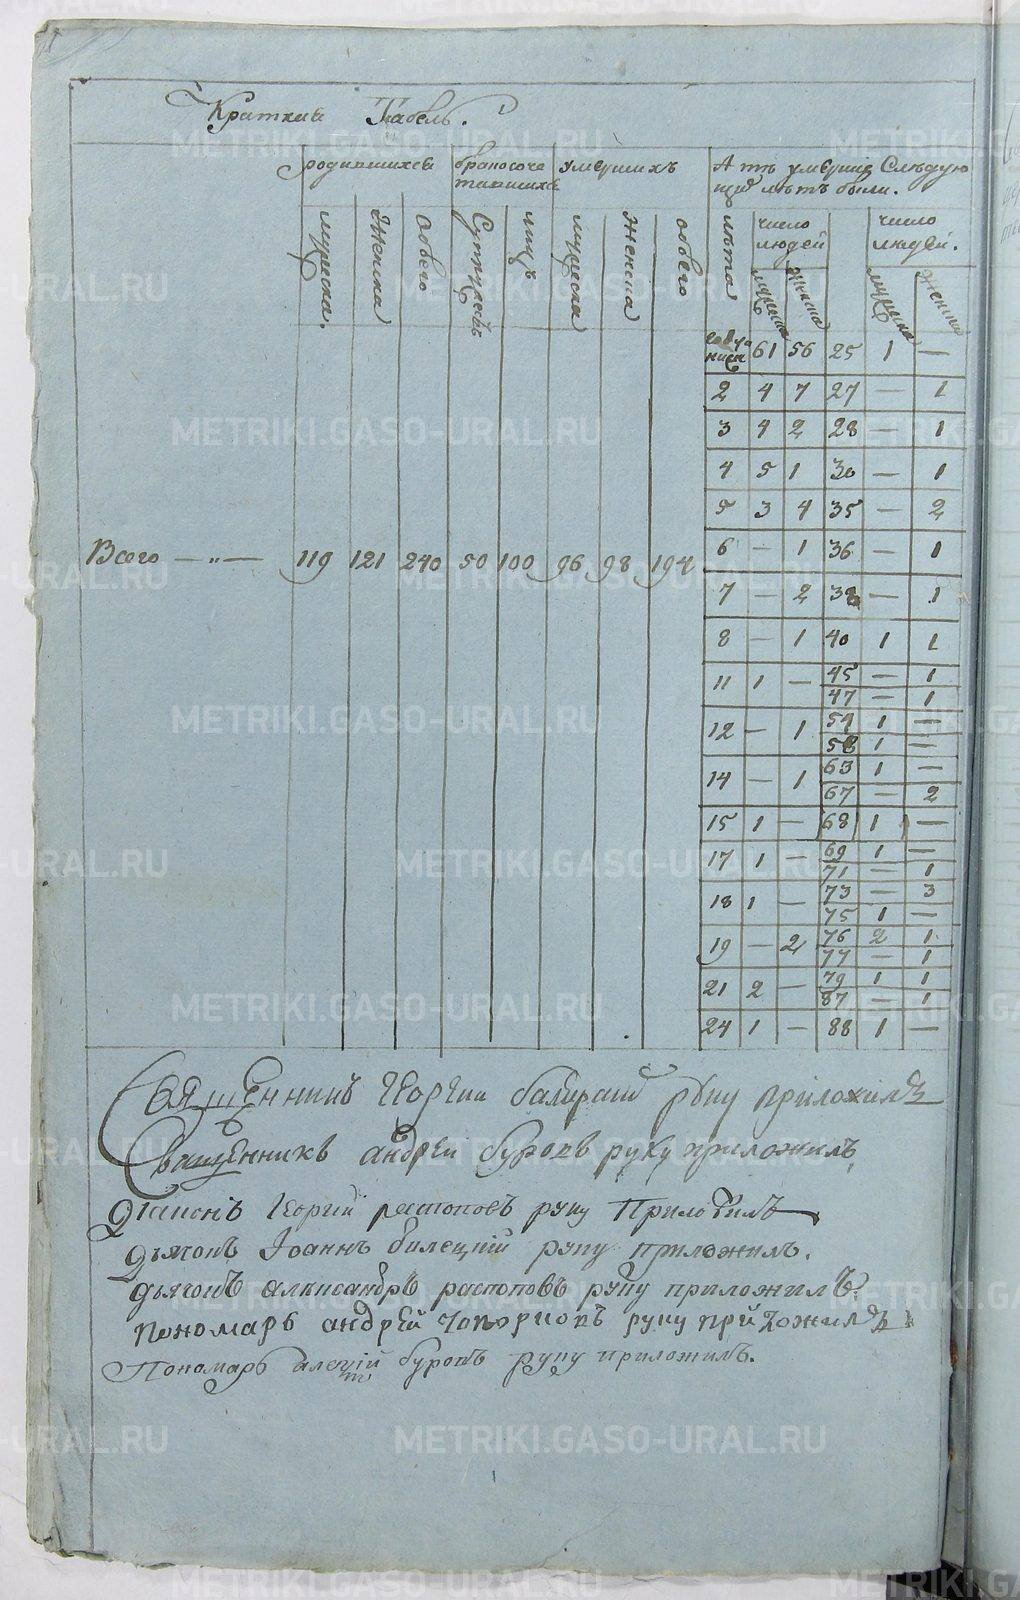 Краткий Табель.
родившихся бракосоче умершихъ А тѣ умершие Слѣдую
тавшихся щие лѣтъ были.
мужеска. Женска обоего Супружествъ лицъ мужеска женска обоего лѣта число людей число людей.
мужеска женска мужеска женска
61 56 25 1 —
2 4 7 27 — 1
3 4 2 28 — 1
4 5 1 30 — 1
5 3 4 35 — 2
Всего — „ — 119 121 240 50 100 96 98 194
6 — 1 36 — 1
7 — 2 38 — 1
8 — 1 40 1 1
11 1 — 45 — 1
47 — 1
12 — 1 54 1 —
58 1 —
14 — 1 63 1 —
67 — 2
15 1 — 68 1 —
17 1 — 69 1 —
71 — 1
18 1 — 73 — 3
75 1 —
19 — 2 76 2 1
77 — 1
21 2 — 79 1 1
87 — 1
24 1 — 88 1 —
Священникъ Георгий руку приложилъ
Священникъ андрей буровъ руку приложилъ
Диаконъ Георгий распоповъ руку Приложилъ
дьячокъ Иоаннъ билецкий руку приложилъ.
дьячокъ александръ распоповъ руку приложилъ.
пономарь андрей руку приложилъ
Пономарь алексий буровъ руку приложилъ.
METRIKI.GASO-URAL.RU